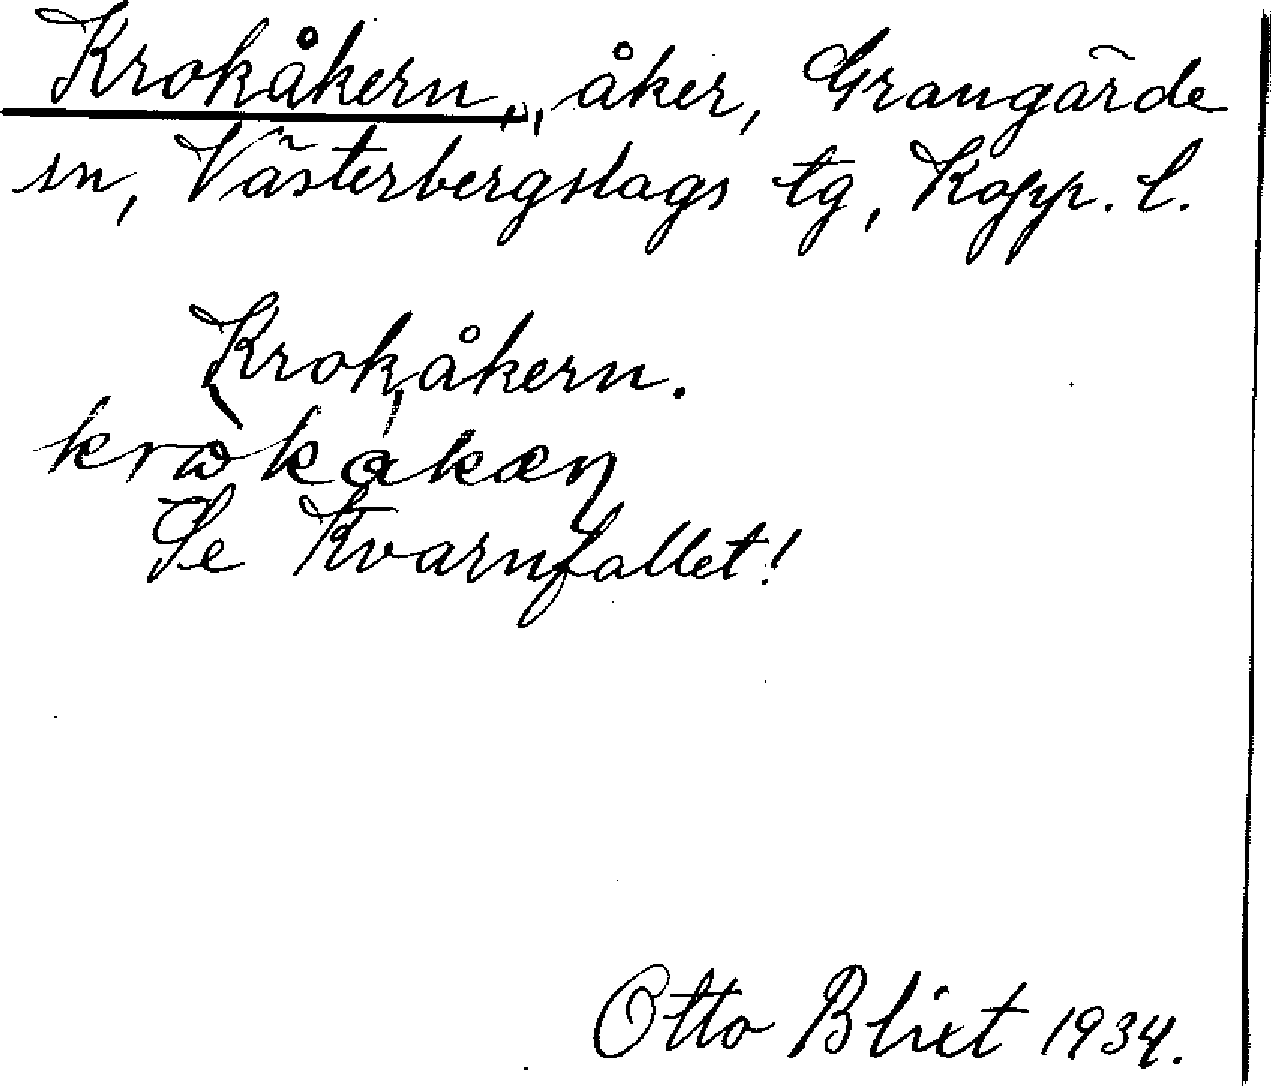 Krokåkern, åker, Grangärde
sn, Västerbergslags tg, Kopp. l.
Krokåkern.
krωkakæn
Se Kvarnfallet!
Otto Blixt 1934.